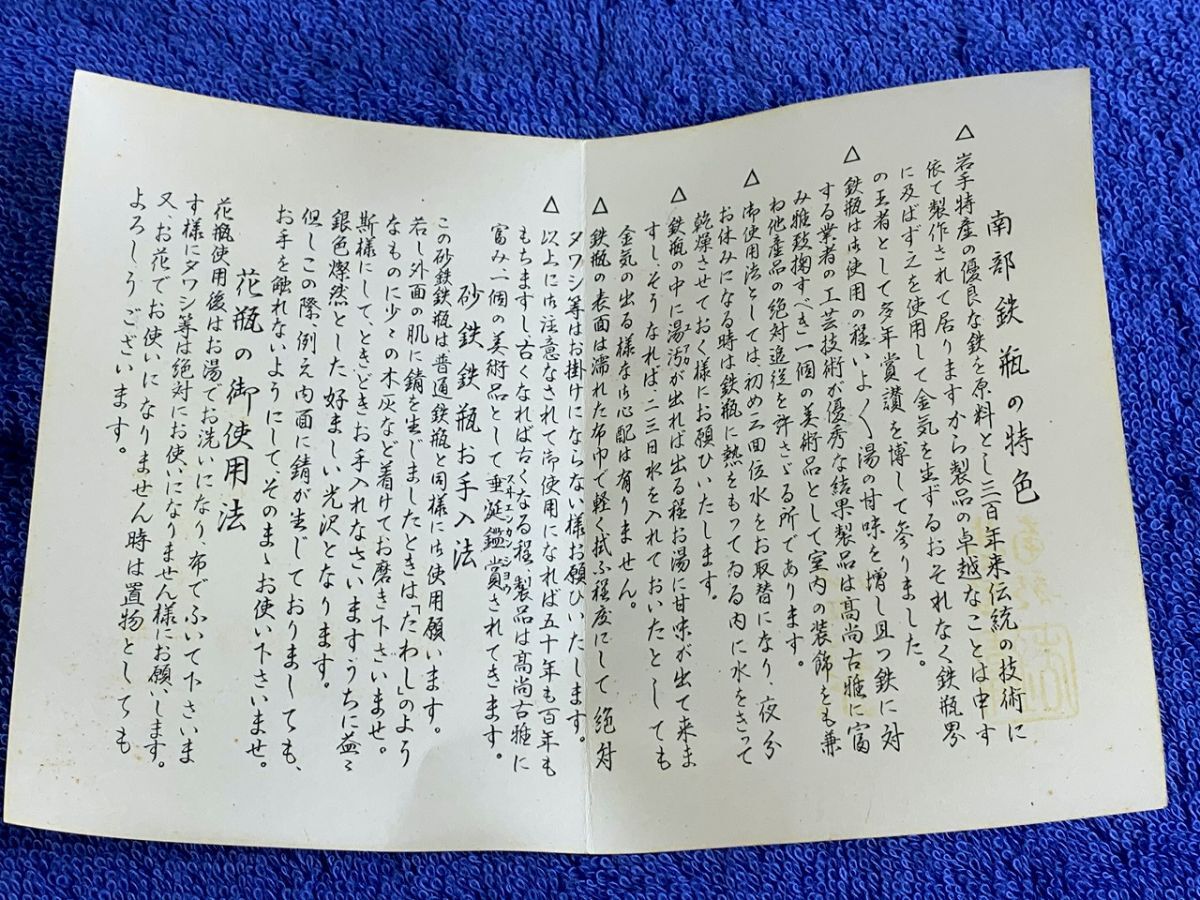 南部鉄瓶の特色
△岩手特産の優良な鉄を原料とし三百年来伝統の技術に
依て製作されて居りますから製品の卓越なことは申す
に及ばず之を使用して金気を生ずるおそれなく鉄瓶界
の王者として多年賞讃を博して参りました。
△鉄瓶は御使用の程いよく湯の甘味を増し且つ鉄に対
する業者の工芸技術が優秀な結果製品は高尚古雅に富
み雅致掬すべき一個の美術品として室内の装飾をも兼
ね他産品の絶対追従を許さゞる所であります。
△御使用法としては、初め二三回位水をお取替になり、夜分
お休みになる時は鉄瓶に熱をもってゐる内に水をきって
乾燥させておく様にお願ひいたします。
△鉄瓶の中に湯渤が出れば出る程お湯に甘味が出て来ま
すし、そうなれば二三日水を入れておいたとしても
金気の出る様な御心配は有りません。
△鉄瓶の表面は濡れた布巾で軽く拭ふ程度にして絶対
タワシ等はお掛けにならない様お願ひいたします。
△以上に御注意なされて御使用になれば五十年も百年も
もちますし古くなれば古くなる程、製品は高尚古雅に
富み、一個の美術品として垂涎鑑賞されてきます。
スヰエンカンショウ
砂鉄鉄瓶お手入法
この砂鉄鉄瓶は普通鉄瓶と同様に御使用願います。
若し外面の肌に錆を生じましたときは「たわし」のよう
なものに少々の木灰など着けてお磨き下さいませ。
斯様にして、ときどきお手入れなさいますうちに益々
銀色燦然とした好ましい光沢となります。
但しこの際、例え内面に錆が生じておりましても、
お手を触れないようにして、そのまゝお使い下さいませ。
花瓶の御使用法
花瓶使用後はお湯でお洗いになり、布でふいて下さいま
す様にタワシ等は絶対にお使いになりません様にお願いします。
又、お花でお使いになりません時は置物としても
よろしうございます。